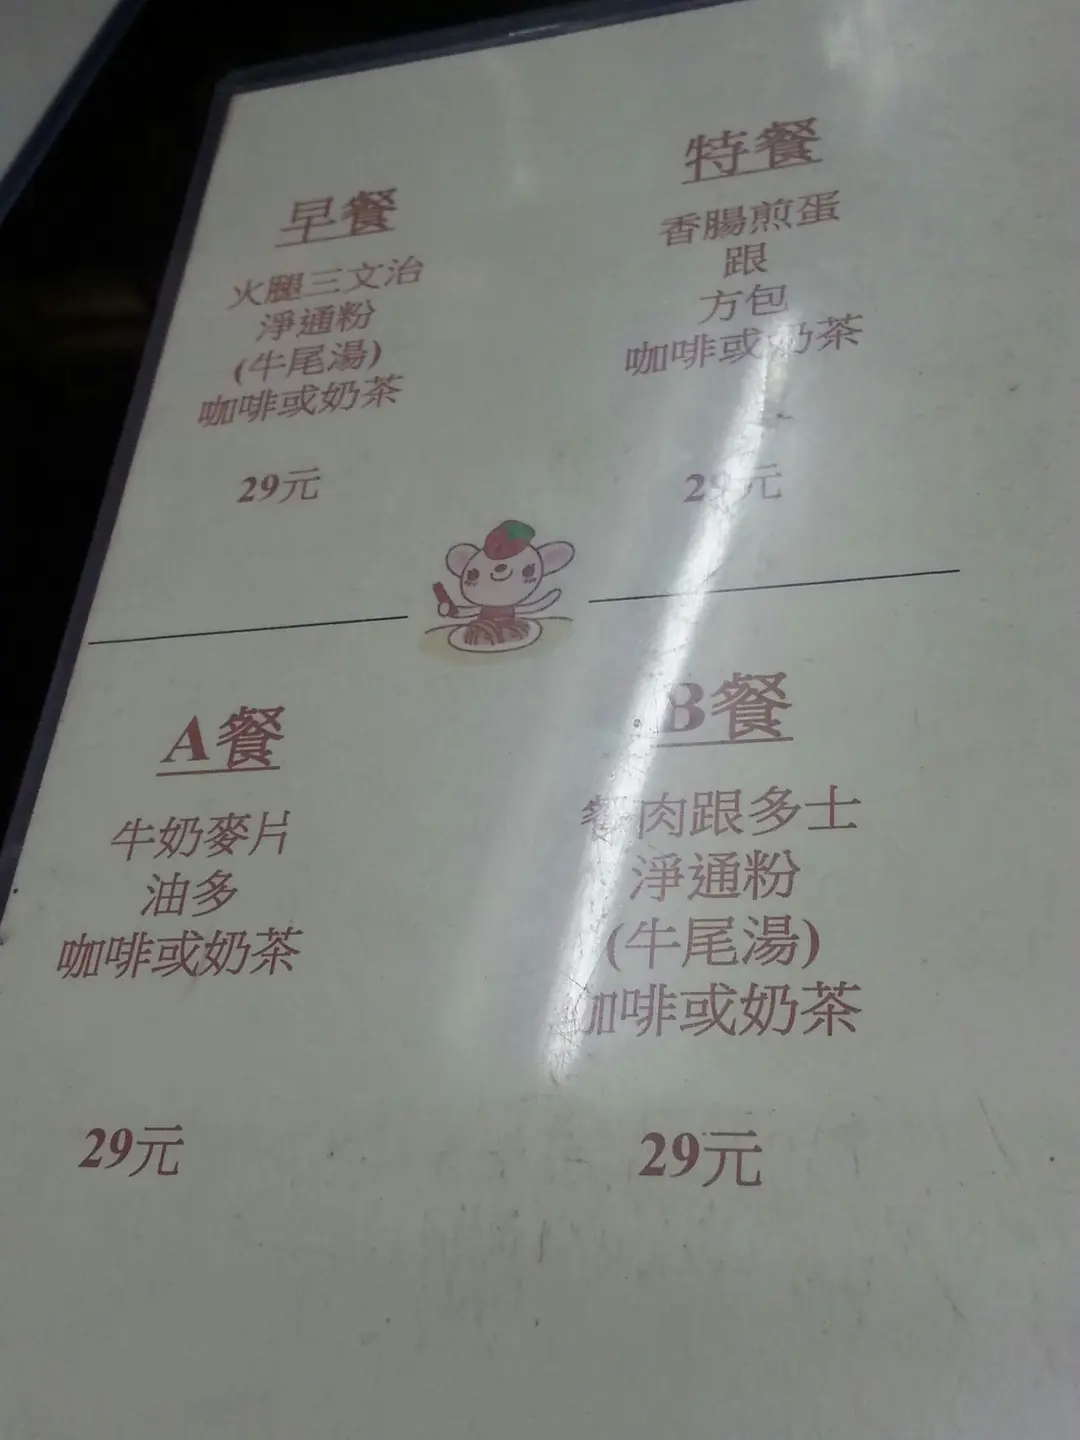 早餐
火腿三文治
淨通粉
(牛尾湯)
咖啡或奶茶
29元
特餐
香腸煎蛋
跟
方包
咖啡或奶茶
29元
A餐
牛奶麥片
油多
咖啡或奶茶
29元
B餐
餐肉跟多士
淨通粉
(牛尾湯)
咖啡或奶茶
29元